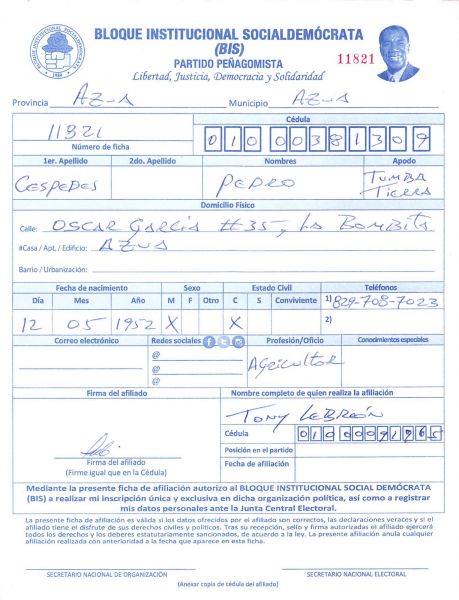 BLOQUE INSTITUCIONAL SOCIALDEMÓCRATA
(BIS)
PARTIDO PEÑAGOMISTA
Libertad, Justicia, Democracia y Solidaridad
11821
BLOQUE INSTITUCIONAL SOCIALDEMOCRATA
Provincia AZUA Municipio AZUA
11821
Número de ficha
Cédula
010 0038130 9
1er. Apellido 2do. Apellido Nombres Apodo
CESPEDES PEDRO TUMBA TIERRA
Domicilio Físico
Calle: OSCAR GARCIA #35, LA BOMBITA
#Casa / Apt. / Edificio: AZUA
Barrio / Urbanización:
Fecha de nacimiento Sexo Estado Civil Teléfonos
Día Mes Año M F Otro C S Conviviente 1) 829-708-7023
12 05 1952 X X 2)
Correo electrónico Redes sociales Profesión/Oficio Conocimientos especiales
@
@
@
Agricultor
Firma del afiliado Nombre completo de quien realiza la afiliación
TONY LEBRÓN
Cédula
Posición en el partido
Fecha de afiliación
Firma del afiliado
(Firme igual que en la Cédula)
Mediante la presente ficha de afiliación autorizo al BLOQUE INSTITUCIONAL SOCIAL DEMÓCRATA
(BIS) a realizar mi inscripción única y exclusiva en dicha organización política, así como a registrar
mis datos personales ante la Junta Central Electoral.
La presente ficha de afiliación es válida si los datos ofrecidos por el afiliado son correctos, las declaraciones veraces y si el
afiliado tiene el disfrute de sus derechos civiles y políticos. Tras su recepción, sello y firma autorizadas el afiliado ejercerá
todos los derechos y los deberes estatutariamente sancionados, de acuerdo a la ley. La presente afiliación anula cualquier
afiliación realizada con anterioridad a la fecha que aparece en esta ficha.
SECRETARIO NACIONAL DE ORGANIZACIÓN SECRETARIO NACIONAL ELECTORAL
(Anexar copia de cédula del afiliado)